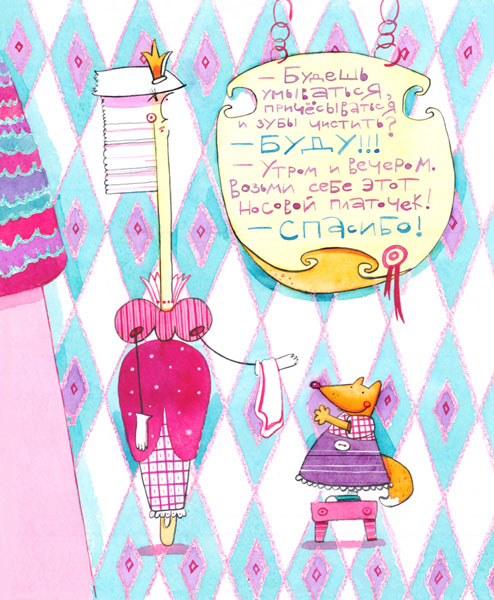 — Будешь
умываться,
причёсываться
и зубы чистить?
— БУДУ!!!
— Утром и вечером.
Возьми себе этот
носовой платочек!
— Спасибо!